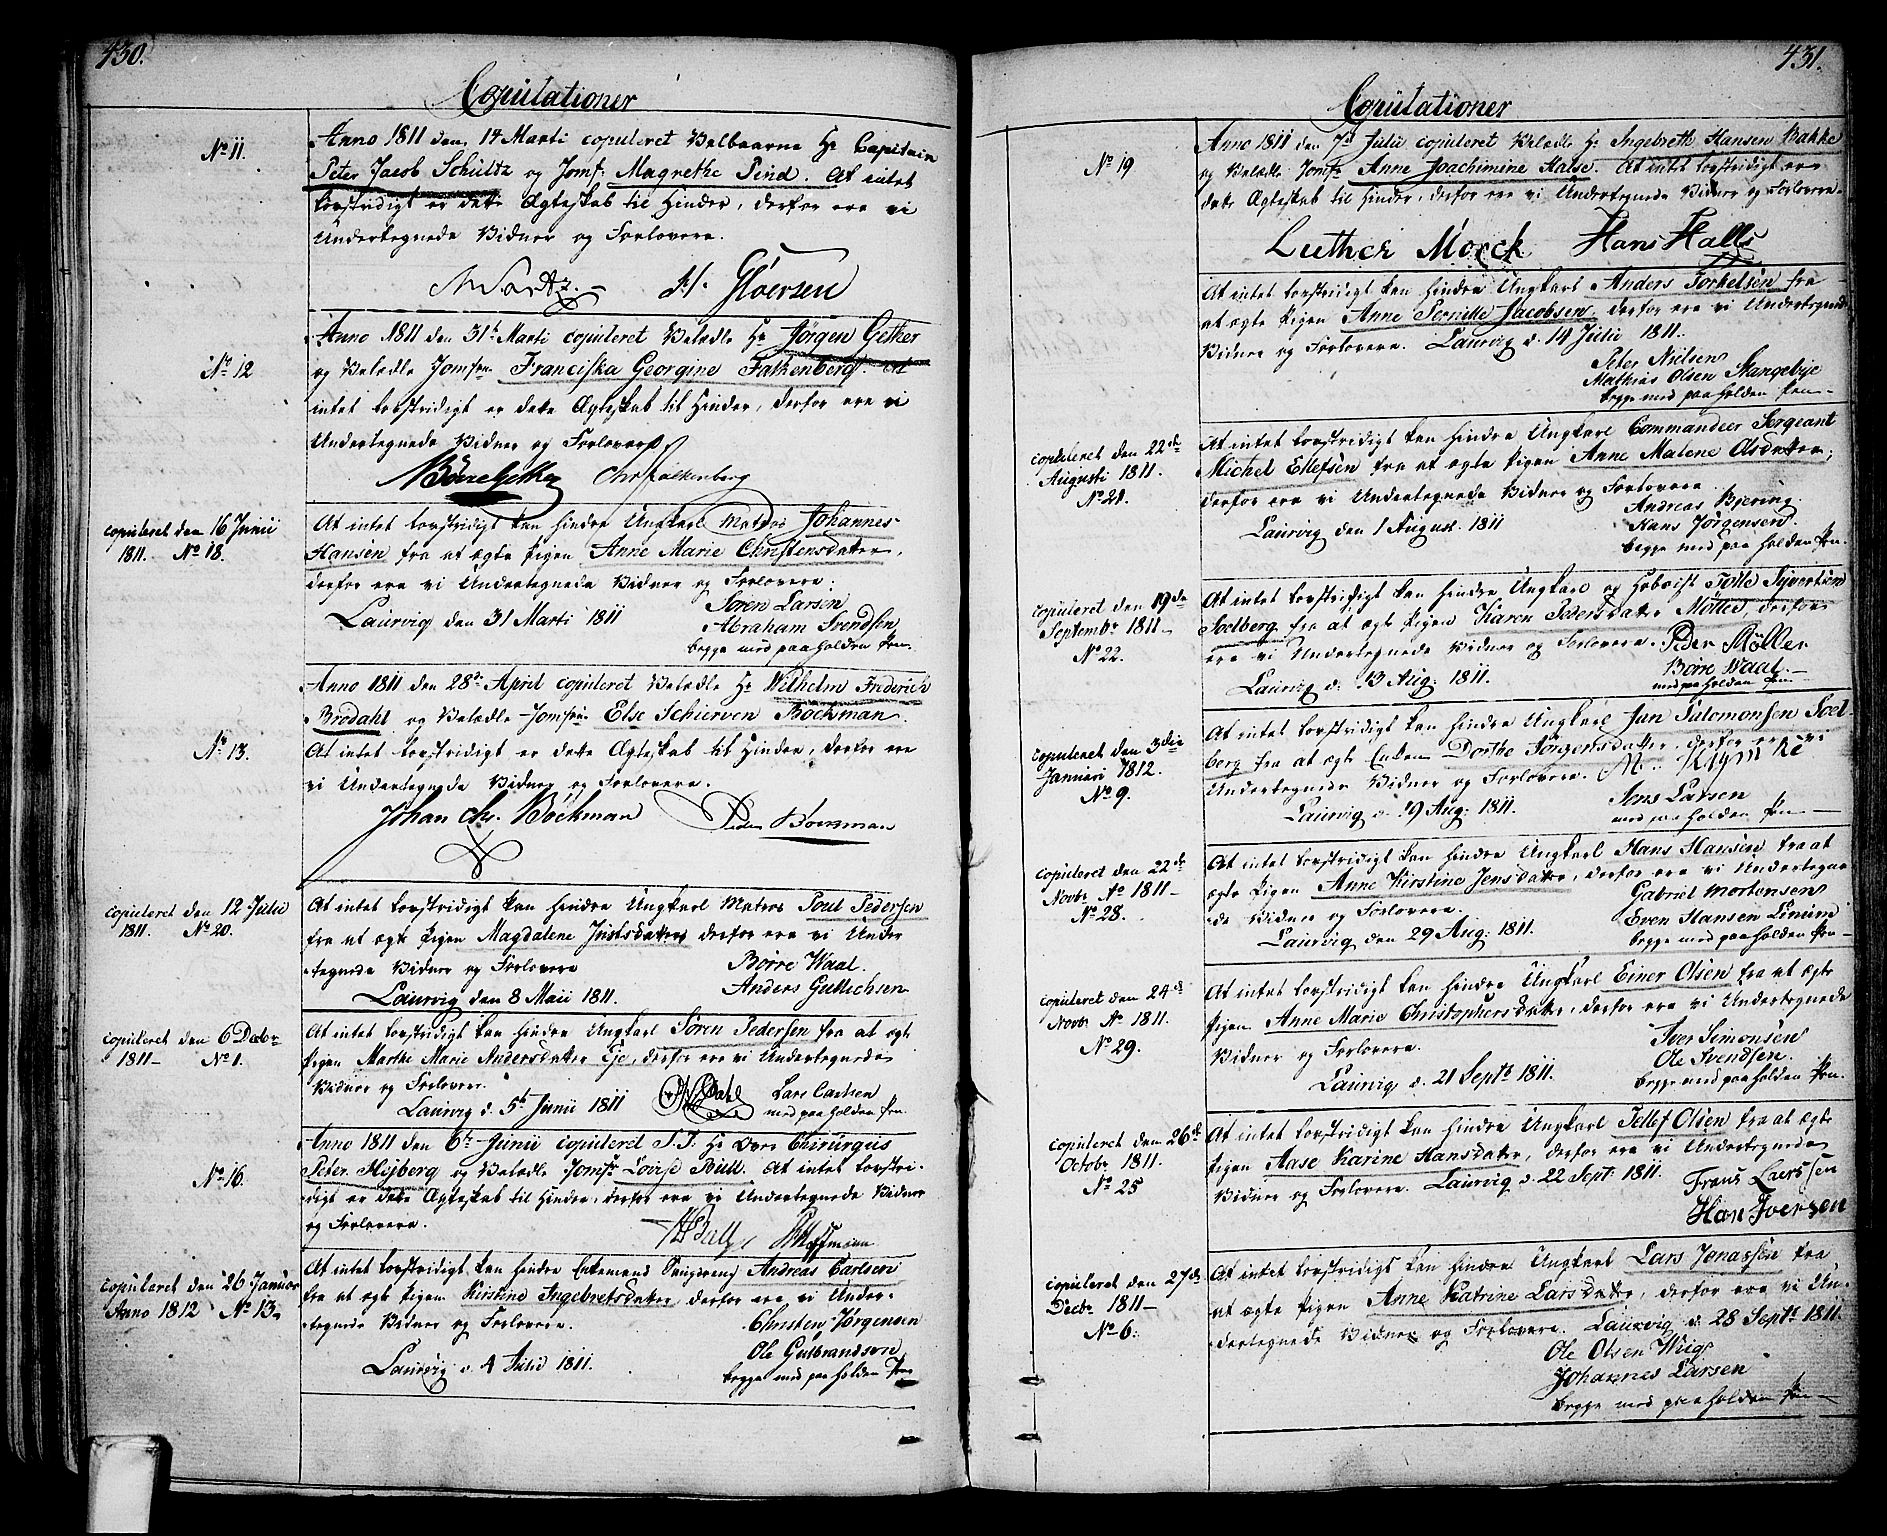 430.
Copulationer
No 11.
Anno 1811 den 14 Marti copuleret Velbaarne Hr Capitain
Peter Jacob Schultz og Jomf: Magrethe Pind. At intet
lovstridigt er dette Ægteskab til Hinder, derfor ere vi
Undertegnede Vidner og Forlovere.
H. Gløersen
No 12
Anno 1811 den 31te Marti copuleret Velædle Hr Jørgen Gether
og Velædle Jomfru Franciska Georgine Falkenberg. At
intet lovstridigt er dette Ægteskab til Hinder, derfor ere vi
Undertegnede Vidner og Forlovere
Børre Gether Chr Falkenberg
copuleret den 16 Junii
1811. No 18.
At intet lovstridigt kan hindre Ungkarl Matros Johannes
Hansen fra at ægte Pigen Anne Marie Christensdatter,
derfor ere vi Undertegnede Vidner og Forlovere.
Laurvig den 31 Marti 1811
Søren Larsen
Abraham Svendsen
begge med paaholden Pen.
No 13.
Anno 1811 den 28de April copuleret Velædle Hr Wilhelm Friderich
Brodahl og Velædle Jomfru Else Schierven Böckman.
At intet lovstridigt er dette Ægteskab til Hinder, derfor ere
vi Undertegnede Vidner og Forlovere.
Johan Chr. Böckman Peder Böckman
copuleret den 12 Julii
1811. No 20.
At intet lovstridigt kan hindre Ungkarl Matros Poul Pedersen
fra at ægte Pigen Magdalene Justsdatter derfor ere vi Under
tegnede Vidner og Forlovere
Laurvig den 8 Maii 1811.
Børre Waal.
Anders Gullichsen
copuleret den 6 Decbr
1811- No 1.
At intet lovstridigt kan hindre Ungkarl Søren Pedersen fra at ægte
Pigen Marthe Marie Andersdatter Eje, derfor ere vi Undertegnede
Vidner og Forlovere.
Laurvig d. 5te Junii 1811
Dahl Lars Carlsen
med paaholden Pen.
No 16.
Anno 1811 den 6te Junii copuleret S. T. Hr Over Chirurgus
Peter Hejberg og Velædle Jomfr Lovise Bull. At intet lovstri-
digt er dette Ægteskab til Hinder, derfor ere vi Undertegnede Vidner
og Forlovere.
Hoffmann
copuleret den 26 Januar
Anno 1812 No 13.
At intet lovstridigt kan hindre Enkemand Andreas Carlsen
fra at ægte Pigen Kirstine Ingebretsdatter derfor ere vi Under-
tegnede Vidner og Forlovere.
Laurvig d. 4 Julii 1811.
Christen Jørgensen
Ole Gulbrandsen
begge med paaholden Pen
431.
Copulationer
No 19
Anno 1811 den 7de Julii copuleret Velædle Hr Ingebreth Hansen Bakke
og Velædle Jomfr Anne Joachimine Halse. At intet lovstridigt er
dette Ægteskab til Hinder, derfor ere vi Undertegnede Vidner og Forlovere.
Luther Morck Hans Halls
At intet lovstridigt kan hindre Ungkarl Anders Torkelsen fra
at ægte Pigen Anne Jacobsen, derfor ere vi Undertegnede
Vidner og Forlovere. Laurvig d. 14 Julii 1811.
Peter Nielsen
Mathias Olsen Stangebye
begge med paaholden Pen-
copuleret den 22de
Augusti 1811.
No 21.
At intet lovstridigt kan hindre Ungkarl Commandeer Sergeant
Michel Ellefsen fra at ægte Pigen Anne Malene Olsdatter,
derfor ere vi Undertegnede Vidner og Forlovere
Laurvig den 1 August. 1811
Andreas Bjering.
Hans Jørgensen.
begge med paaholden Pen.
copuleret den 19de
Septembr 1811-
No 22.
At intet lovstridigt kan hindre Ungkarl og Hoboist Tolle Syvertsen
Soelberg fra at ægte Pigen Karen Pedersdatter Møller derfor
ere vi Undertegnede Vidner og Forlovere.
Laurvig d. 13 Aug: 1811.
Peder Møller
Børre Waal.
med paaholden Pen-
copuleret den 3die
Januari 1812.
No 9.
At intet lovstridigt kan hindre Ungkarl Jan Salomonsen Soel-
berg fra at ægte Enken Dorthe Jørgensdatter, derfor ere vi
Undertegnede Vidner og Forlovere.
Laurvig d. 19 Aug: 1811.
Jens Larsen
med paaholden Pen
copuleret den 22de
Novbr Ao 1811-
No 28.
At intet lovstridigt kan hindre Ungkarl Hans Hansen fra at
ægte Pigen Anne Kirstine Jensdatter, derfor ere vi Undertegne
de Vidner og Forlovere.
Laurvig den 29 Aug: 1811.
Gabriel Mortensen
Even Hansen Linum
begge med paaholden Pen-
copuleret den 24de
Novbr Ao 1811.
No 29.
At intet lovstridigt kan hindre Ungkarl Einer Olsen fra at ægte
Pigen Anne Marie Christophersdatter, derfor ere vi Undertegnede
Vidner og Forlovere.
Laurvig d. 21 Septb 1811.
Iver Simonsen
Ole Svendsen.
begge med paaholden Pen.
copuleret den 26de
Octobr 1811.
No 25
At intet lovstridigt kan hindre Ungkarl Tellef Olsen fra at ægte
Pigen Aase Karine Hansdatter, derfor ere vi Undertegnede
Vidner og Forlovere. Laurvig d. 22 Sept: 1811.
Frans Larssen
Han Iversen
copuleret den 27de
Decbr 1811-
No 6.
At intet lovstridigt kan hindre Ungkarl Lars Jonassen fra
at ægte Pigen Anne Katrine Larsdatter, derfor ere vi Un-
dertegnede Vidner og Forlovere. Laurvig d. 28 Septb 1811.
Ole Olsen Wiig
Johannes Larsen
begge med paaholden Pen